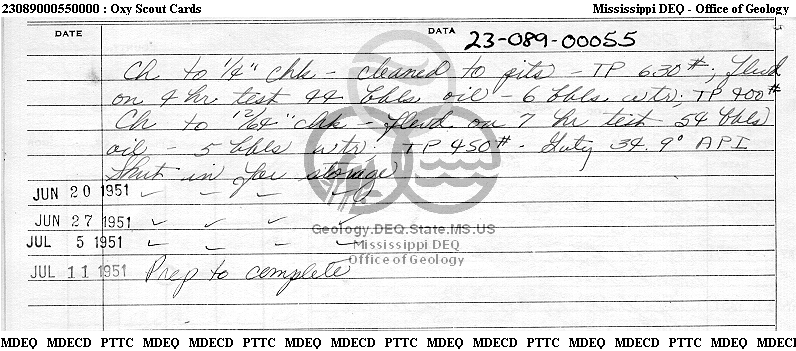 23089000550000 : Oxy Scout Cards Mississippi DEQ - Office of Geology
DATE DATA 23-089-00055
Ch to 1/4" chk - cleaned to pits - TP 630#; flwd
on 4 hr test 44 bbls oil - 6 bbls wtr; TP 400#
Ch to 12/64" chk - flwd on 7 hr test 54 bbls
oil - 5 bbls wtr; TP 450# - Gvty 34.9° API
Shut in for storage
JUN 20 1951 ✓ ✓ ✓ ✓
JUN 27 1951 ✓ ✓ ✓ ✓
Geology.DEQ.State.MS.US
JUL 5 1951 ✓ ✓ ✓ ✓
Mississippi DEQ
Office of Geology
JUL 11 1951 Prep to complete
MDEQ MDECD PTTC MDEQ MDECD PTTC MDEQ MDECD PTTC MDEQ MDECD PTTC MDEQ MDECD PTTC MDEQ MDECD